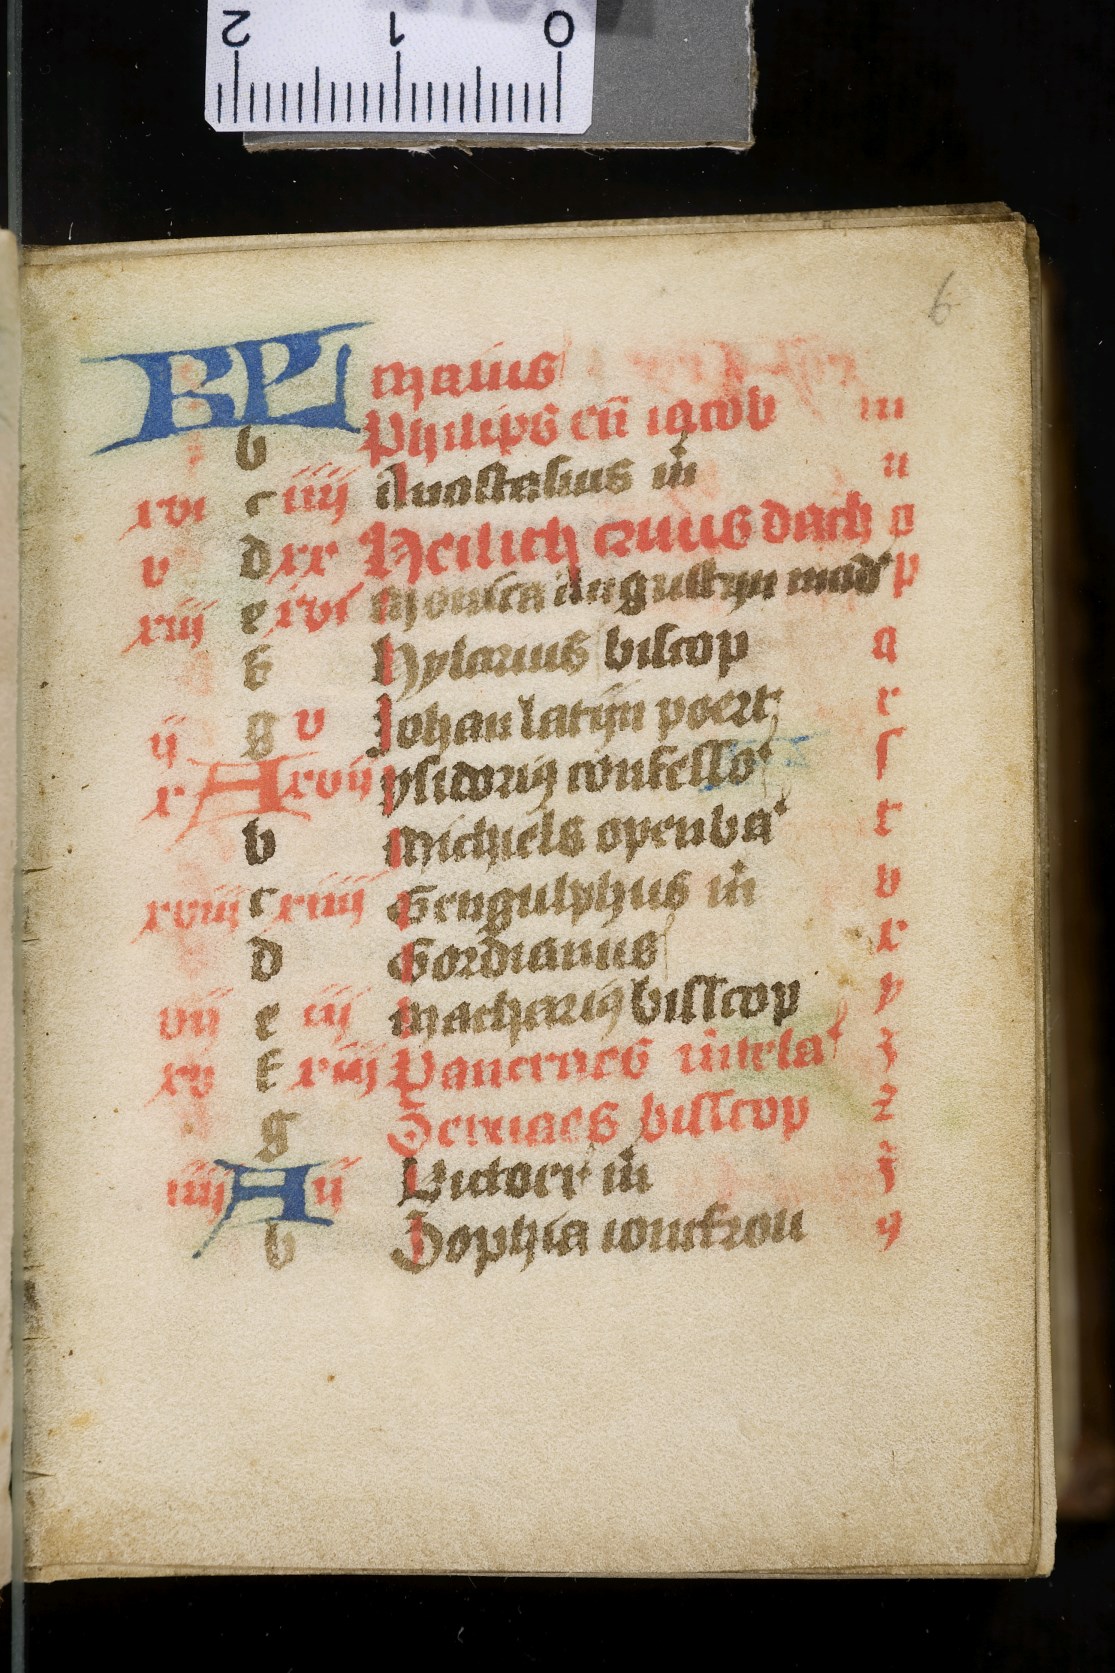 2 1 0
6
KL maius
b Philips en̄ iacob m
xvi c iiij Anastasius m̄ n
v d xx Heilich cruus dach o
xiij e xvi Monica Augustijn mod' p
f Hylarius biscop q
ij g v Johan latijn poert r
x A xvij ysidorus confesso' ſ
b Michiels openba' t
xviij c xiiij Gengulphus m̄ v
d Gordianus x
vij e iij Macharius bisscop y
xv f xiij Pancraes m̄ tela' z
g Seruaes bisscop
iiij A ij Victoer m̄
b Sophia ioncfrou 9